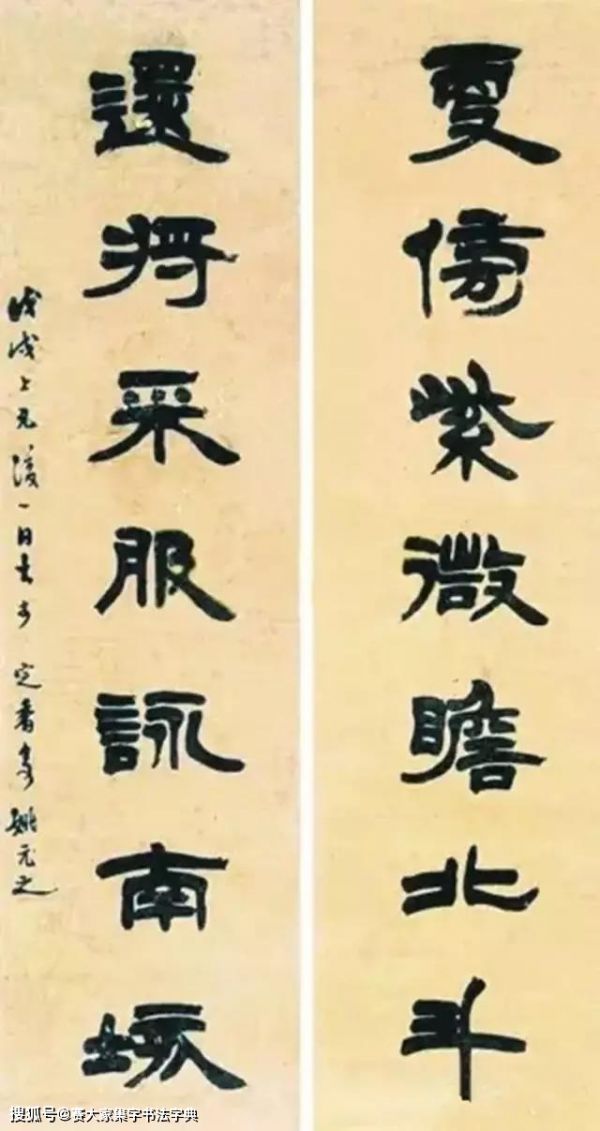 更傍紫微瞻北斗
還將采服詠南垓
戊戌上元後一日書於 姚元之
搜狐号@赛大家集字书法字典